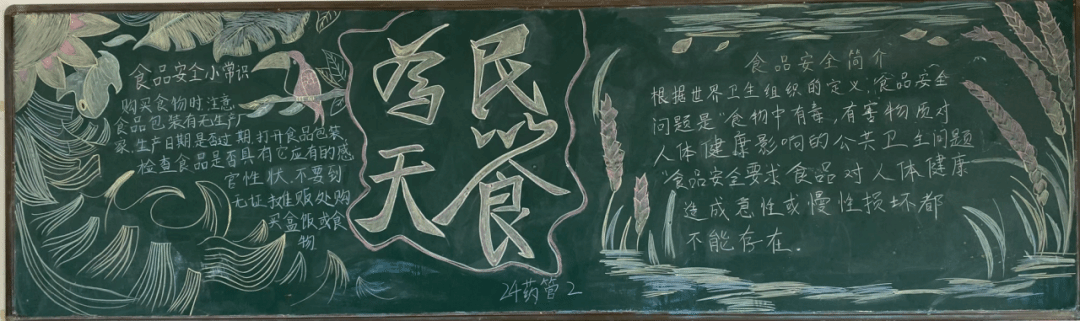 食品安全小常识
购买食物时注意
食品包装有无生产厂
家生产日期是否过期,打开食品包装,
检查食品是否具有它应有的感
官性状、不要到
无证摊贩处购
买盒饭或食
物
民
以食
为
天
食品安全简介
根据世界卫生组织的定义,“食品安全
问题是“食物中有毒,有害物质对
人体健康影响的公共卫生问题
“食品安全要求食品对人体健康
造成急性或慢性损坏都
不能存在.
24药管2